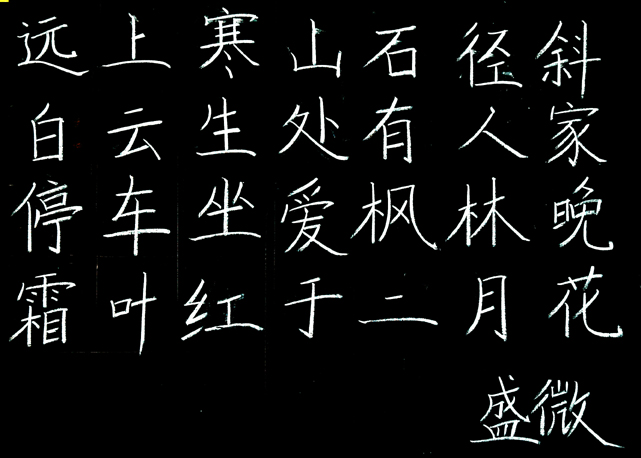 远上寒山石径斜
白云生处有人家
停车坐爱枫林晚
霜叶红于二月花
盛微